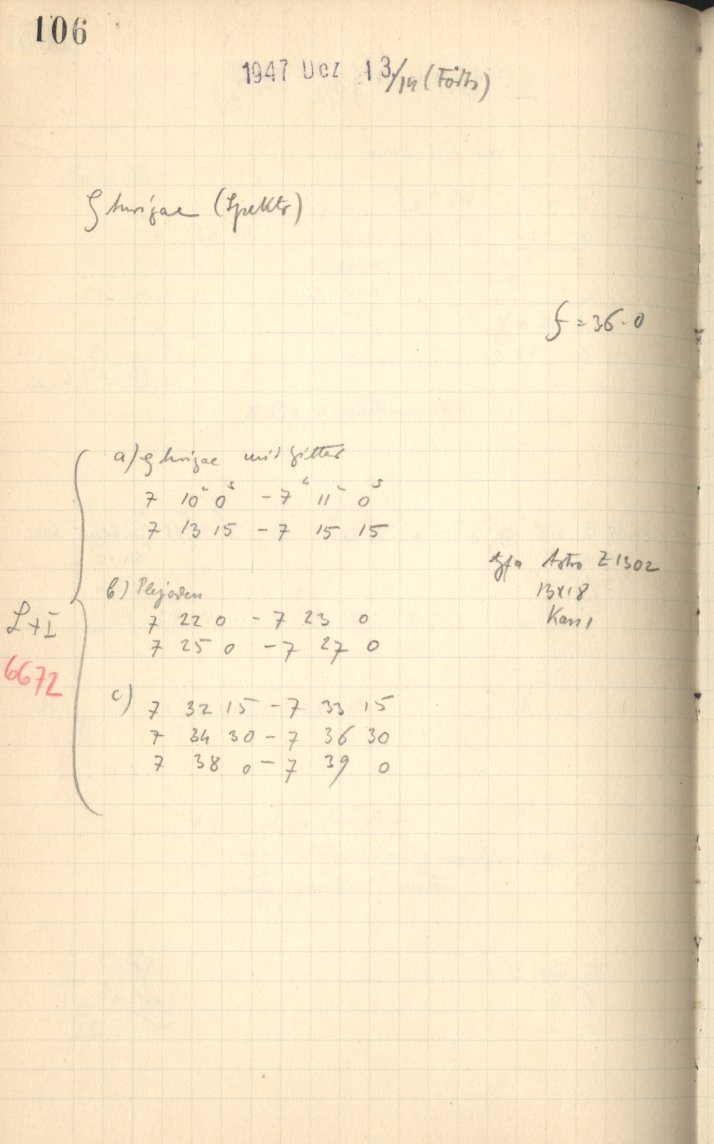 106
1947 Dez 13/14 (Forts)
ζ Aurigae (Spektr)
f = 36.0
a) ζ Aurigae mit Gitter
7 10 0ˢ - 7 11 0ˢ
7 13 15 - 7 15 15
Agfa Astro Z 1302
13x18
Kass 1
b) Plejaden
7 22 0 - 7 23 0
7 25 0 - 7 27 0
L+I
6672
c) 7 32 15 - 7 33 15
7 34 30 - 7 36 30
7 38 0 - 7 39 0